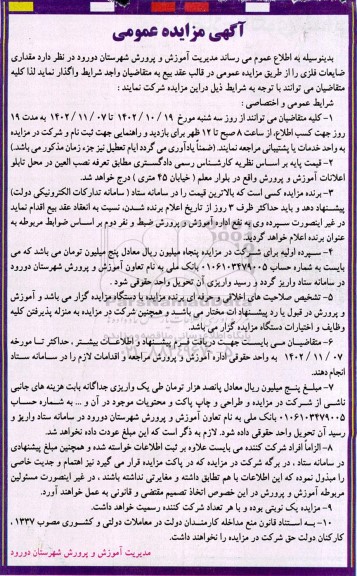 آگهی مزایده عمومی
بدینوسیله به اطلاع عموم می رساند مدیریت آموزش و پرورش شهرستان دورود در نظر دارد مقداری
ضایعات فلزی را از طریق مزایده عمومی در قالب عقد بیع به متقاضیان واجد شرایط واگذار نماید لذا کلیه
متقاضیان می توانند با توجه به شرایط ذیل دراین مزایده شرکت نمایند :
شرایط عمومی و اختصاصی :
۱- کلیه متقاضیان می توانند از روز سه شنبه مورخ ۱۴۰۲/۱۰/۱۹ تا ۱۴۰۲/۱۱/۰۷ به مدت ۱۹
روز جهت کسب اطلاع، از ساعت ۸ صبح تا ۱۲ ظهر برای بازدید و راهنمایی جهت ثبت نام و شرکت در مزایده
به واحد خدمات یا پشتیبانی مراجعه نمایند. (ضمناً یادآوری می گردد ایام تعطیل نیز جزء زمان مذکور می باشد.)
۲- قیمت پایه بر اساس نظریه کارشناس رسمی دادگستری مطابق تعرفه نصب العین در محل تابلو
اعلانات آموزش و پرورش واقع در بلوار معلم ( خیابان ۴۵ متری ) درج خواهد شد.
۳- برنده مزایده کسی است که بالاترین قیمت را در سامانه ستاد ( سامانه تدارکات الکترونیکی دولت)
پیشنهاد دهد و باید حداکثر ظرف ۳ روز از تاریخ اعلام برنده شدن، نسبت به انعقاد عقد بیع اقدام نماید
در غیر اینصورت سپرده وی به نفع اداره آموزش و پرورش ضبط و نفر دوم بر اساس ضوابط مربوطه به
عنوان برنده اعلام خواهد گردید.
۴- سپرده اولیه برای شرکت در مزایده پنجاه میلیون ریال معادل پنج میلیون تومان می باشد که می
بایست به شماره حساب ۰۱۰۶۱۰۳۴۷۹۰۰۵ بانک ملی به نام تعاون آموزش و پرورش شهرستان دورود
در سامانه ستاد واریز گردد و رسید واریزی آن تحویل واحد حقوقی شود .
۵- تشخیص صلاحیت های اخلاقی و حرفه ای برنده مزایده با دستگاه مزایده گزار می باشد و آموزش
و پرورش در قبول یا رد پیشنهادات مختار می باشد و همچنین شرکت در مزایده به منزله پذیرفتن کلیه
وظایف و اختیارات دستگاه مزایده گزار می باشد.
۶- متقاضیان می بایست جهت دریافت فرم پیشنهاد و اطلاعات بیشتر ، حداکثر تا مورخه
۱۴۰۲/۱۱/۰۷ به واحد حقوقی اداره آموزش و پرورش مراجعه و اقدامات لازم را در سامانه ستاد
انجام دهند.
۷- مبلغ پنج میلیون ریال معادل پانصد هزار تومان طی یک واریزی جداگانه بابت هزینه های جانبی
ناشی از شرکت در مزایده و طراحی و چاپ پاکت و محتویات موجود در آن و ... به شماره حساب
۰۱۰۶۱۰۳۴۷۹۰۰۵ بانک ملی به نام تعاون آموزش و پرورش شهرستان دورود در سامانه ستاد واریز و
رسید آن تحویل واحد حقوقی داده شود. لازم به ذکر است که این مبلغ عودت داده نخواهد شد.
۸- الزاماً افراد شرکت کننده می بایست علاوه بر ثبت اطلاعات خواسته شده و همچنین مبلغ پیشنهادی
در سامانه ستاد ، در برگه شرکت در مزایده که در پاکت مزایده قرار می گیرد نیز اهتمام و جدیت خاصی
را مبذول نموده که این اطلاعات با هم تطابق داشته و مغایرتی نداشته باشند ، در غیر اینصورت مسئولین
مربوطه آموزش و پرورش در این خصوص اتخاذ تصمیم مقتضی و قانونی به عمل خواهند آورد.
۹- مزایده یک نوبتی بوده و با هر تعداد شرکت کننده رسمیت خواهد داشت.
۱۰- به استناد قانون منع مداخله کارمندان دولت در معاملات دولتی و کشوری مصوب ۱۳۳۷ ،
کارکنان دولت حق شرکت در مزایده را نخواهند داشت.
مدیریت آموزش و پرورش شهرستان دورود